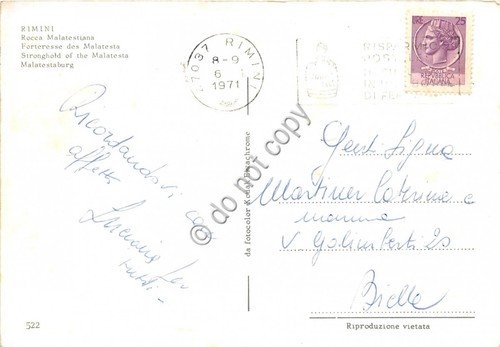 RIMINI
Rocca Malatestiana
Forteresse des Malatesta
Stronghold of the Malatesta
Malatestaburg
47037 RIMINI
8-9
6
1971
25
REPUBBLICA
ITALIANA
Ricordandovi con
affetto
Luciana per
tutti
Gent. Sig.na
Martiner Caterina e
mamma
V. Galimberti 25
Biella
da fotocolor Kodak Ektachrome
© do not copy
522
Riproduzione vietata